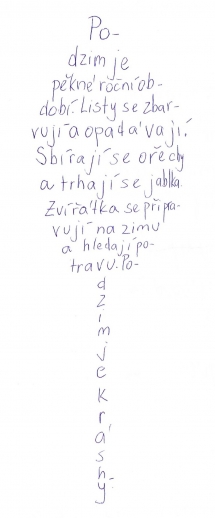 Po-
dzim je
pěkné roční ob-
dobí. Listy se zbar-
vují a opadávají.
Sbírají se ořechy
a trhají se jablka.
Zvířátka se připra-
vují na zimu
a hledají po-
travu. Po-
d
z
i
m
j
e
k
r
á
s
n
ý.